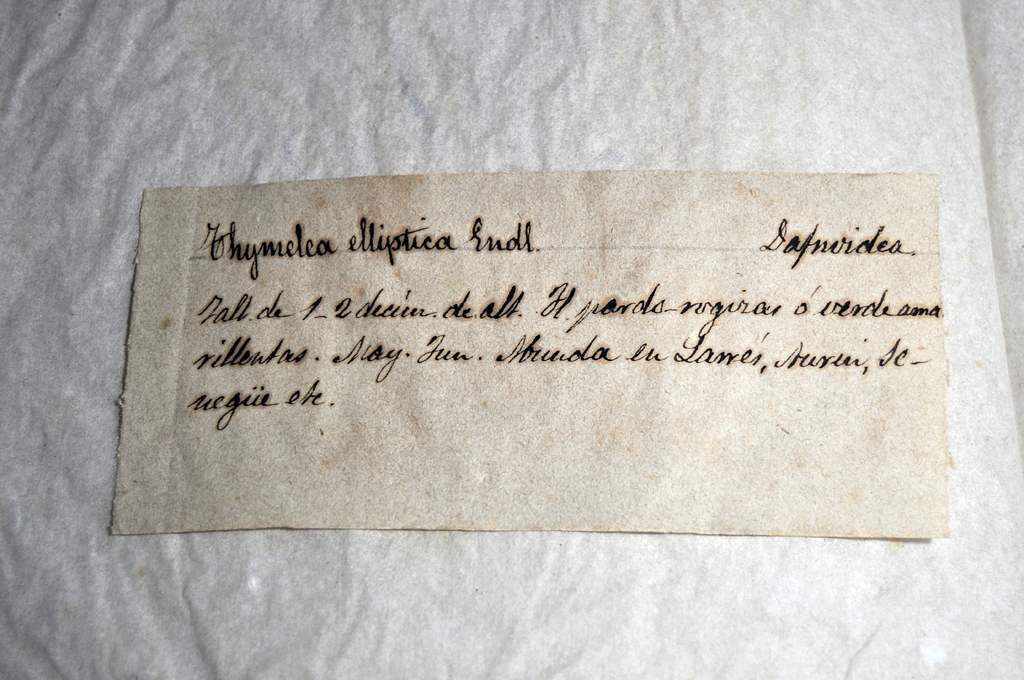 Thymelea elliptica Endl. Dafnoidea.
Tall. de 1-2 decím. de alt. Fl. pardo-rogizas ó verde ama
rillentas. May. Jun. Abunda en Larrés, Aurin, Se-
negüe etc.